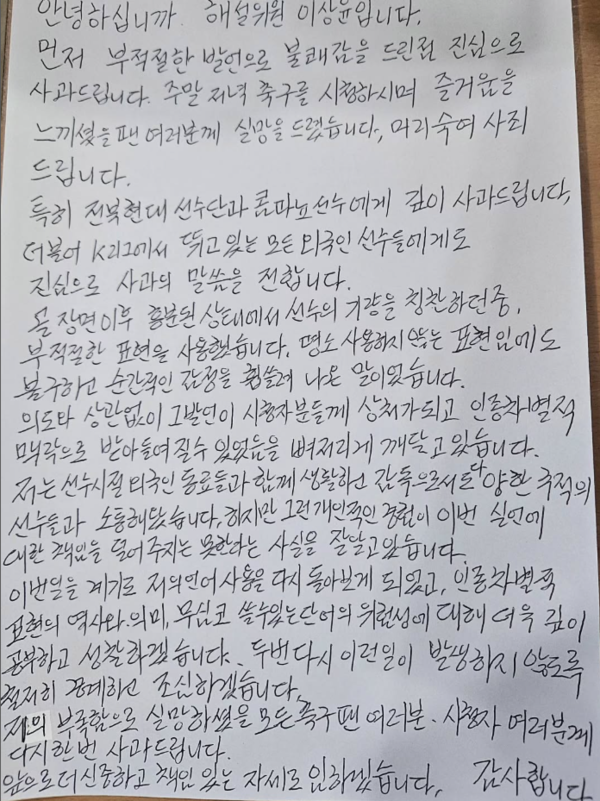 안녕하십니까. 해설위원 이상윤입니다.
먼저 부적절한 발언으로 불쾌감을 드린점 진심으로
사과드립니다. 주말 저녁 축구를 시청하시며 즐거움을
느끼셨을 팬 여러분께 실망을 드렸습니다, 머리숙여 사죄
드립니다.
특히 전북현대 선수단과 콤파뇨선수에게 깊이 사과드립니다,
더불어 K리그에서 뛰고 있는 모든 외국인 선수들에게도
진심으로 사과의 말씀을 전합니다.
골 장면이후 흥분된 상태에서 선수의 기량을 칭찬하던중,
부적절한 표현을 사용했습니다, 평소 사용하지 않는 표현임에도
불구하고 순간적인 감정을 휩쓸려 나온 말이었습니다.
의도와 상관없이 그발언이 시청자분들께 상처가되고 인종차별적
맥락으로 받아들여질수 있었음을 뼈저리게 깨닫고 있습니다.
저는 선수시절 외국인 동료들과 함께 생활하고 감독으로서도 다양한 국적의
선수들과 소통해왔습니다, 하지만 그런개인적인 경험이 이번 실언에
대한 책임을 덜어 주지는 못한다는 사실을 잘알고있습니다.
이번일을 계기로 저의언어 사용을 다시 돌아보게 되었고, 인종차별적
표현의 역사와 의미, 무심코 쓸수있는단어의 위험성에 대해 더욱 깊이
공부하고 성찰하겠습니다. 두번다시 이런일이 발생하지 않도록
철저히 경계하고 조심하겠습니다,
저의 부족함으로 실망하셨을 모든축구팬 여러분·시청자 여러분께
다시한번 사과드립니다.
앞으로 더 신중하고 책임 있는 자세로 임하겠습니다, 감사합니다